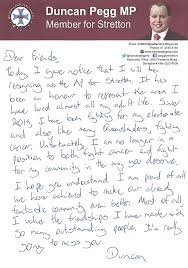 Duncan Pegg MP
Member for Stretton
Dear Friends
Today I gave notice that I will be
resigning as the MP for Stretton. It has
been an honour to represent the area I
have lived almost all my adult life. Since
2019, I have been fighting for my electorate
and also, like many Queenslanders, fighting
cancer. Unfortunately I am no longer in a
position to both fight cancer and fight
for my community in the way you deserve.
I hope you understand. I am proud of all
we have achieved to make our already
fantastic community even better. Most of all
I value the friendships I have made with
so many outstanding people. I'm really
going to miss you.
Duncan